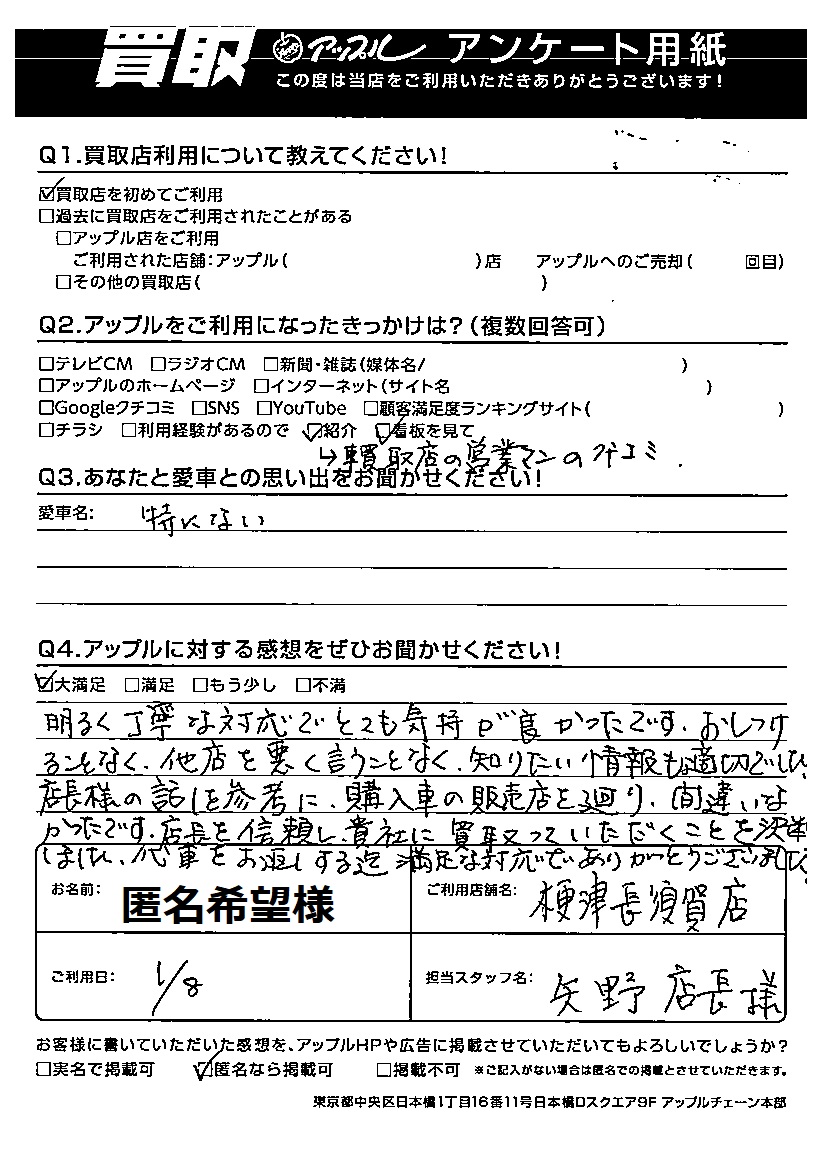 買取 アップル アンケート用紙
この度は当店をご利用いただきありがとうございます!
Q1.買取店利用について教えてください!
☑買取店を初めてご利用
□過去に買取店をご利用されたことがある
□アップル店をご利用
ご利用された店舗:アップル( )店 アップルへのご売却( 回目)
□その他の買取店( )
Q2.アップルをご利用になったきっかけは?(複数回答可)
□テレビCM □ラジオCM □新聞・雑誌(媒体名/ )
□アップルのホームページ □インターネット(サイト名 )
□Googleクチコミ □SNS □YouTube □顧客満足度ランキングサイト( )
□チラシ □利用経験があるので ☑紹介 ☑看板を見て
↳車買取店の営業マンのクチコミ.
Q3.あなたと愛車との思い出をお聞かせください!
愛車名: 特にない
Q4.アップルに対する感想をぜひお聞かせください!
☑大満足 □満足 □もう少し □不満
明るく丁寧な対応でとても気持が良かったです。おしつけ
ることなく、他店を悪く言うことなく、知りたい情報も適切でした。
店長様の話しを参考に、購入車の販売店を廻り、間違いな
かったです。店長を信頼し、貴社に買取っていただくことを決
しました、代車をお返しする迄満足な対応でありがとうございました。
お名前: 匿名希望様 ご利用店舗名: 木更津長須賀店
ご利用日: 1/8 担当スタッフ名: 矢野店長様
お客様に書いていただいた感想を、アップルHPや広告に掲載させていただいてもよろしいでしょうか?
□実名で掲載可 ☑匿名なら掲載可 □掲載不可 ※ご記入がない場合は匿名での掲載とさせていただきます。
東京都中央区日本橋1丁目16番11号日本橋Dスクエア9F アップルチェーン本部